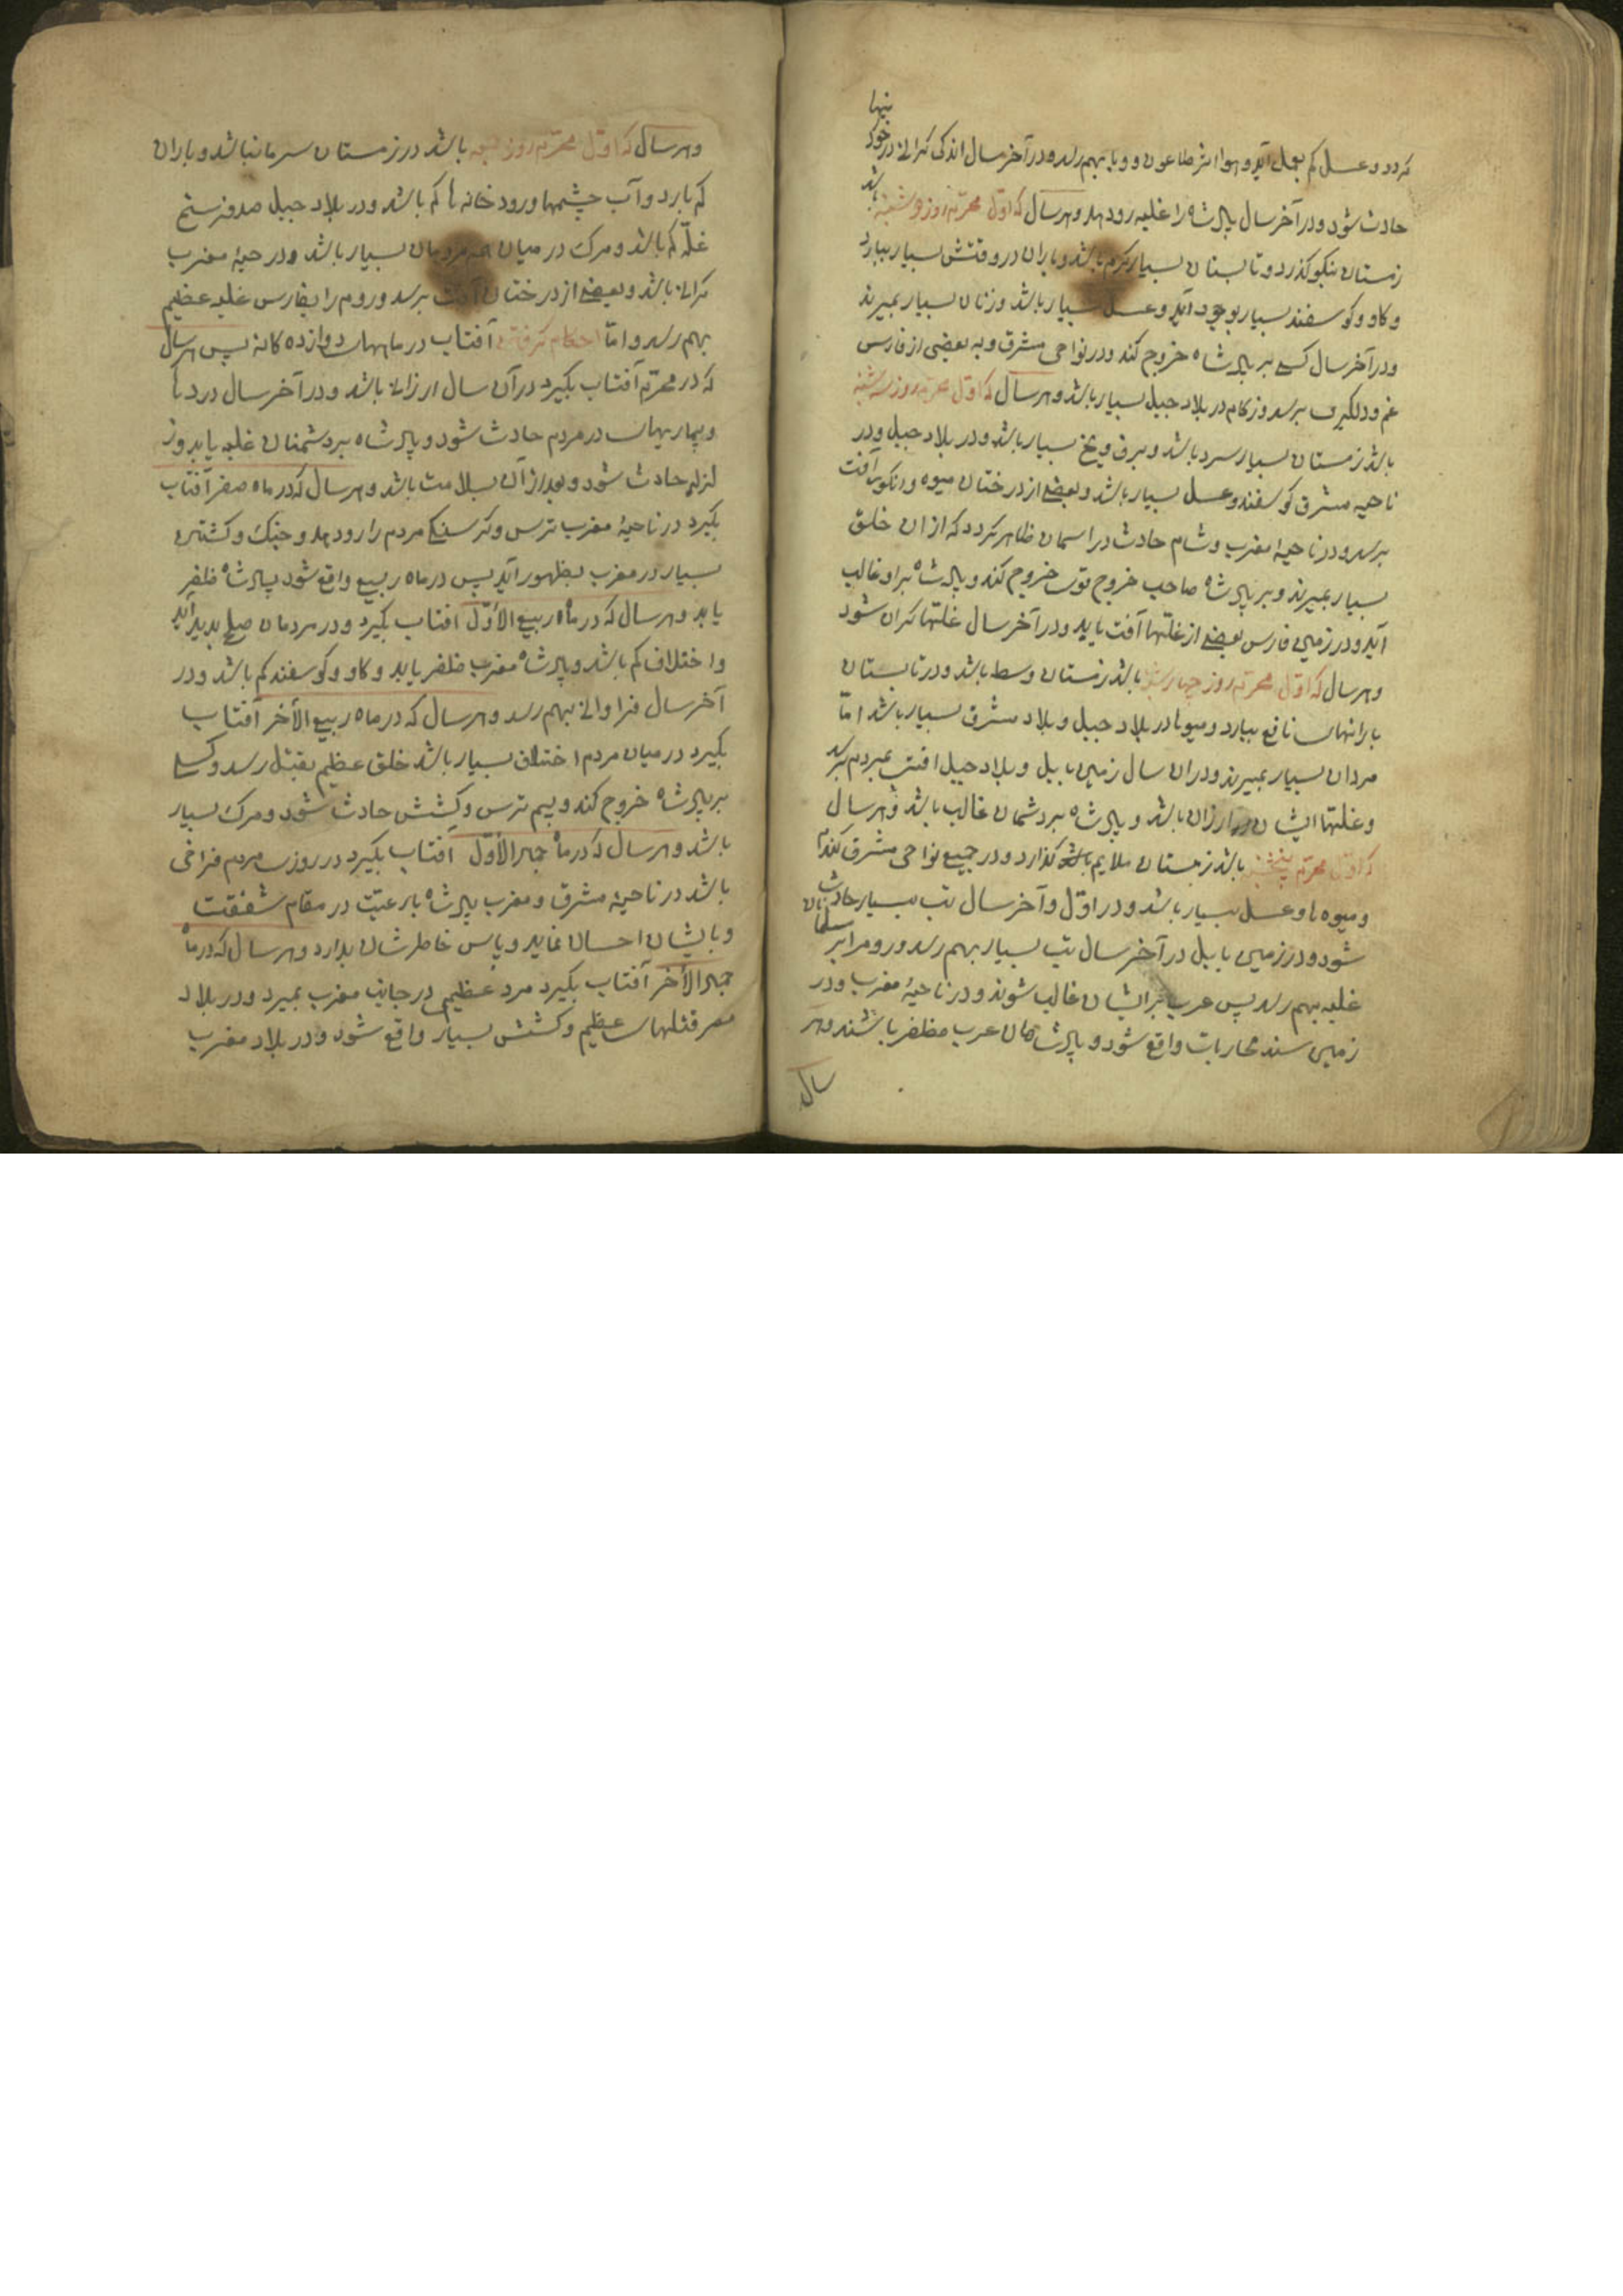 کردد و عسل کم بعمل آید و هوا اثر طاعون و وبا بهم رسد و در آخر سال اندکی کرانی در خورد
نیها
حادث شود و در آخر سال پادشاه را غلبه رو دهد و هر سال که اوّل محرّم روز دوشنبه باشد
زمستان نیکو کذرد و تابستان بسیار کرم باشد و باران در وقتش بسیار ببارد
و کاو و کوسفند بسیار بوجود آید و عسل بسیار باشد و زنان بسیار بمیرند
و در آخر سال کسی بر پادشاه خروج کند و در نواحی مشرق و به بعضی از فارس
غم و دلکیری برسد و زکام در بلاد جبل بسیار باشد و هر سال که اوّل محرم روز سه شنبه
باشد زمستان بسیار سرد باشد و برف و یخ بسیار باشد و در بلاد جبل و در
ناحیه مشرق کوسفند و عسل بسیار باشد و بعضی از درختان میوه و انکور آفت
برسد و در ناحیهٔ مغرب و شام حادث در اسمان ظاهر کردد که از ان خلق
بسیار بمیرند و بر پادشاه صاحب خروج قوی خروج کند و پادشاه بر او غالب
آید و در زمین فارس بعضی از غلّتها آفت یابد و در آخر سال غلتها کران شود
و هر سال که اوّل محرّم روز چهارشنبه باشد زمستان وسط باشد و در تابستان
بارانهای نافع ببارد و میوها در بلاد جبل و بلاد مشرق بسیار باشد امّا
مردان بسیار بمیرند و در ان سال زمین بابل و بلاد جبل افتی بمردم برسد
و غلتها ایشان ارزان باشد و پادشاه بر دشمان غالب باشد و هر سال
که اوّل محرّم پنجشنبه باشد زمستان ملایم کذارد و در جمیع نواحی مشرق کندم
و میوه ها و عسل بسیار باشد و در اوّل و آخر سال تب بسیار حادث
شود و در زمین بابل در آخر سال تب بسیار بهم رسد و روم را بر مسلمانان
غلبه بهم رسد پس عرب بر ایشان غالب شوند و در ناحیهٔ مغرب و در
زمین سند محاربات واقع شود و پادشاهان عرب مظفر باشند و هر
سال
و هر سال که اوّل محرّم روز جمعه باشد در زمستان سرما نباشد و باران
کم بارد و آب چشمها و رودخانه ها کم باشد و در بلاد جبل صد فرسخ
غلّه کم باشد و مرک در میان مردمان بسیار باشد و در مغرب
کرانی باشد و بعضی از درختان آفت برسد و روم را بفارس غلبه عظیم
بهم رسد و امّا احکام کرفتن آفتاب در ماههای دوازده کانه پس هر سال
که در محرّم آفتاب بکیرد در آن سال ارزانی باشد و در آخر سال دردها
و بیماریهای در مردم حادث شود و پادشاه بر دشمنان غلبه یابد و ز
لزله حادث شود و بعد از آن بسلامت باشد و هر سال که در ماه صفر آفتاب
بکیرد در ناحیهٔ مغرب ترس و کرسنکی مردم را رو دهد و جنک و کشتن
بسیار در مغرب بظهور آید پس در ماه ربیع واقع شود پادشاه ظفر
یابد و هر سال که در ماه ربیع الاوّل افتاب بکیرد و در مردمان صلح پدید آید
و اختلاف کم باشد و پادشاه مغرب ظفر یابد و کاو و کوسفند کم باشد و در
آخر سال فراوانی بهم رسد و هر سال که در ماه ربیع الآخر آفتاب
بکیرد در میان مردم اختلاف بسیار باشد خلق عظیم بقتل رسد و کسی
بر پادشاه خروج کند و بیم ترس و کشتش حادث شود و مرک بسیار
باشد و هر سال که در ماه جمادالأوّل آفتاب بکیرد در روزی مردم فراخی
باشد در ناحیهٔ مشرق و مغرب پادشاه با رعیّت در مقام شفقت
و با ایشان احسان نماید و پاس خاطرشان بدارد و هر سال که در ماه
جمادالآخر آفتاب بکیرد مرد عظیمی در جانب مغرب بمیرد و در بلاد
مصر قتلهای عظیم و کشتش بسیار واقع شود و در بلاد مغرب